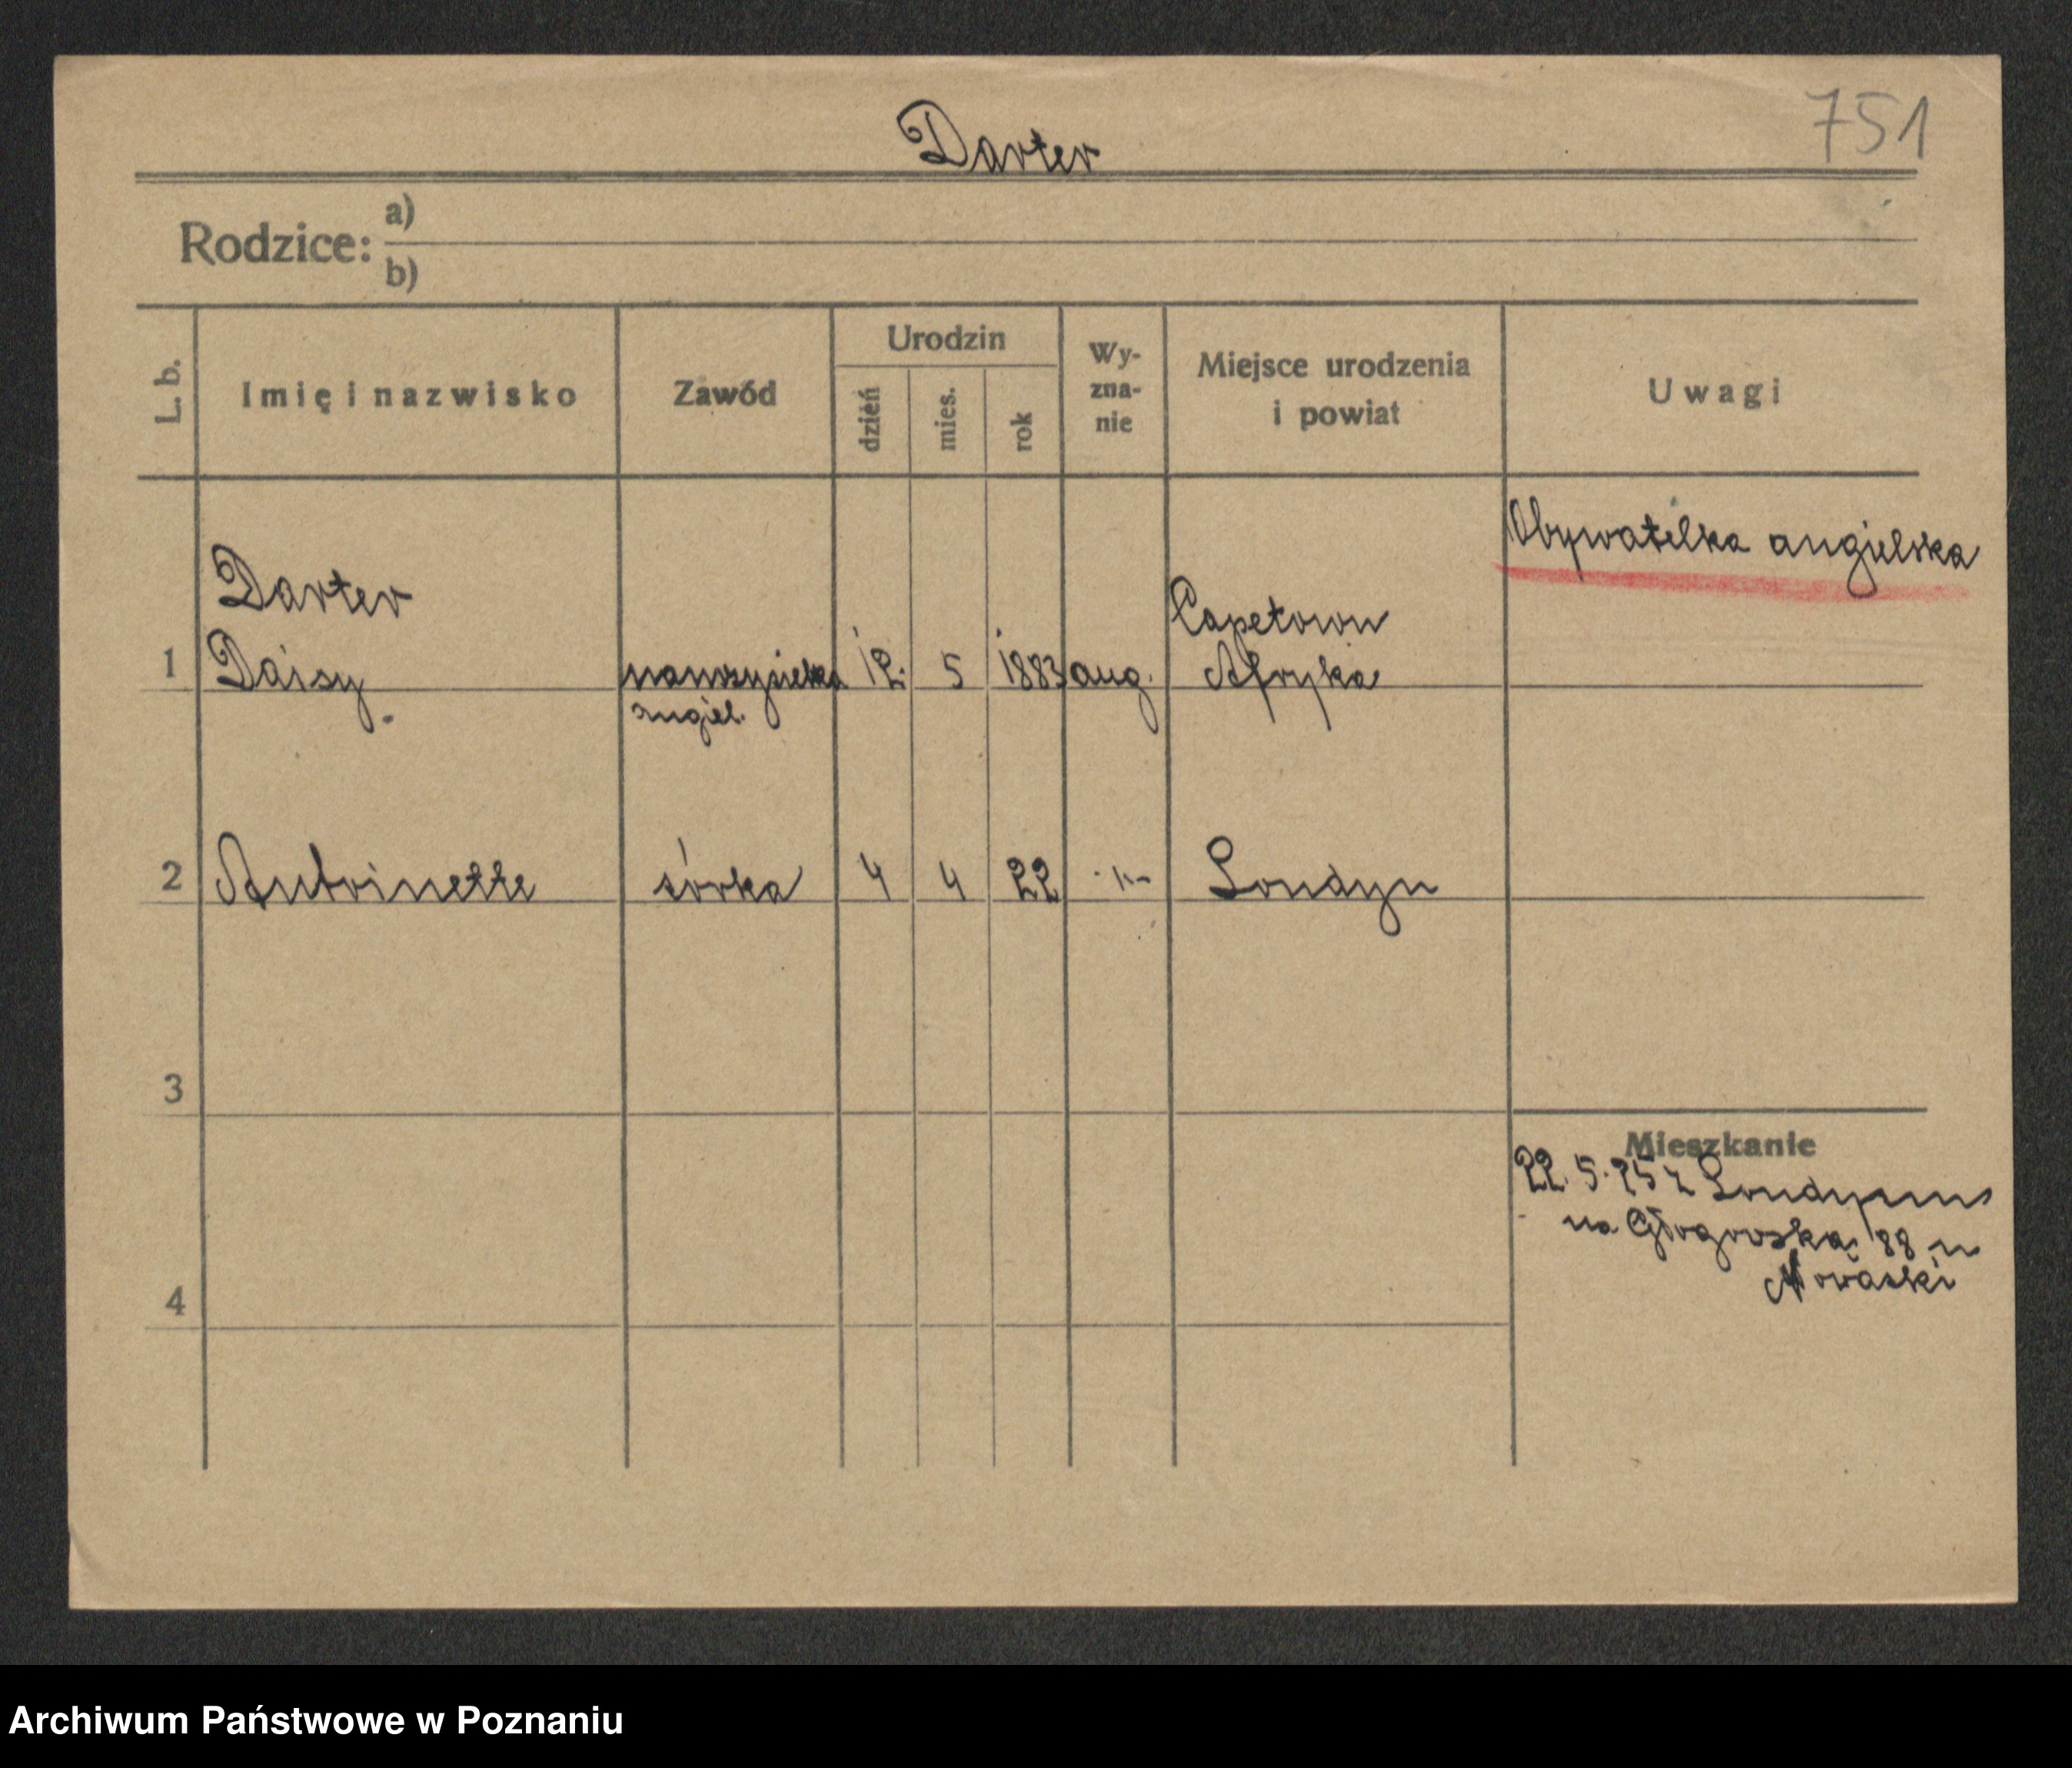 751
Darter
Rodzice: a)
b)
L. b.
Imię i nazwisko
Zawód
Urodzin
dzień
mies.
rok
Wy-
zna-
nie
Miejsce urodzenia
i powiat
Uwagi
Obywatelka angielska
Darter
Capetown
1 Daisy nauczycielka 12. 5 1883 ang. Afryka
angiel.
2 Antoinette córka 4 4 22 -"- Londyn
3
Mieszkanie
22. 5. 25 z Londynu
na Głogowska 88 u
Nowaski
4
Archiwum Państwowe w Poznaniu